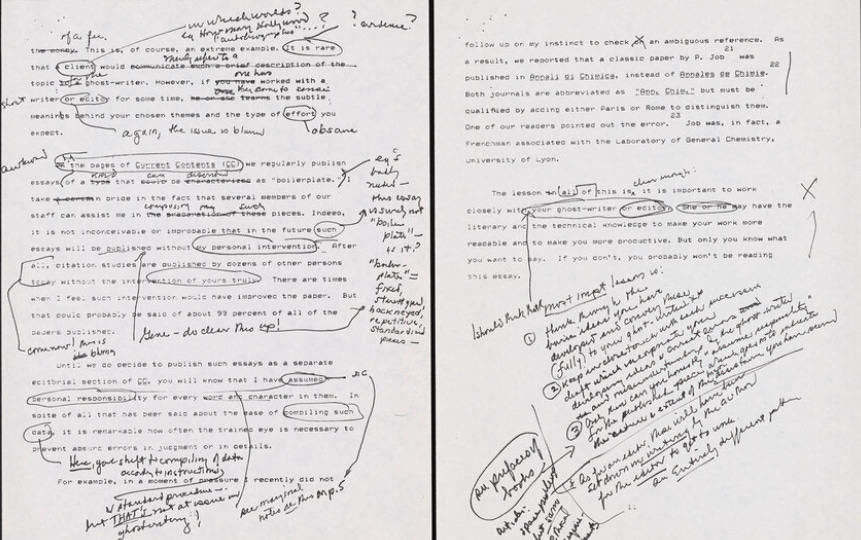 in which words?
eg How many Hollywood
"autobiographies" ...?
? evidence?
of a fee.
the money. This is, of course, an extreme example. It is rare
merely refer to a
that a client would communicate such a brief description of the
one has
topic to a ghost-writer. However, if you have worked with a
writer or editor for some time, he or she learns the subtle
meanings behind your chosen themes and the type of effort you
expect.
again, the issue is blurred
obscure
awkward
In the pages of Current Contents (CC) we regularly publish
essays of a type that could be characterized as "boilerplate." I
take a certain pride in the fact that several members of our
composing my such
staff can assist me in the preparation of these pieces. Indeed,
it is not inconceivable or improbable that in the future such
essays will be published without my personal intervention. After
all, citation studies are published by dozens of other persons
today without the intervention of yours truly. There are times
when I feel such intervention would have improved the paper. But
that could probably be said of about 99 percent of all of the
papers published.
Gene - do clear this up!
come now! this is
badly
this essay
is surely not
"boiler
plate" —
is it?
"boiler-
plate" =
fixed,
stereotyped,
hackneyed,
repetitive,
standardized
pieces —
Until we do decide to publish such essays as a separate
editorial section of CC, you will know that I have assumed
personal responsibility for every word and character in them. In
spite of all that has been said about the ease of compiling such
data, it is remarkable how often the trained eye is necessary to
prevent absurd errors in judgment or in details.
Here, you shift to compiling of data
according to instructions
For example, in a moment of pressure I recently did not
standard procedure —
but THAT's not at issue in
ghostwriting!
see marginal
notes on this Mp. 5
follow up on my instinct to check on an ambiguous reference. As
21
a result, we reported that a classic paper by P. Job was
22
published in Annali di Chimica, instead of Annales de Chimie.
Both journals are abbreviated as "Ann. Chim." but must be
qualified by adding either Paris or Rome to distinguish them.
23
One of our readers pointed out the error. Job was, in fact, a
frenchman associated with the Laboratory of General Chemistry,
University of Lyon.
clear enough:
The lesson in all of this is, it is important to work
closely with your ghost-writer or editor. She or he may have the
literary and the technical knowledge to make your work more
readable and to make you more productive. But only you know what
you want to say. If you don't, you probably won't be reading
this essay.
I should think that most impt lessons is:
① think through the
basic ideas you have
developed and convey these
(fully) to your ghost-writer
② keep in close touch with each successive
draft which incorporates your
developing ideas & correct errors
and misunderstandings by the ghost-writer
③ Only thus can you honestly "assume responsibility"
for the published piece
As for an editor, these will have been
set down in writing by the author
for the editor to get to work
an Entirely different pattern
prefaces of
books